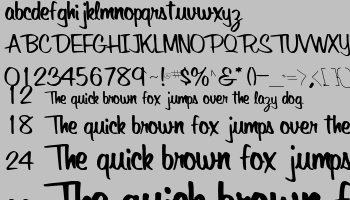 abcdefghijklmnopqrstuvwxyz
ABCDEFGHIJKLMNOPQRSTUVWXY
0123456789~!@#$%^&*()-_+=>,<[]{
12 The quick brown fox jumps over the lazy dog.
18 The quick brown fox jumps over the
24 The quick brown fox jumps
The quick brown f